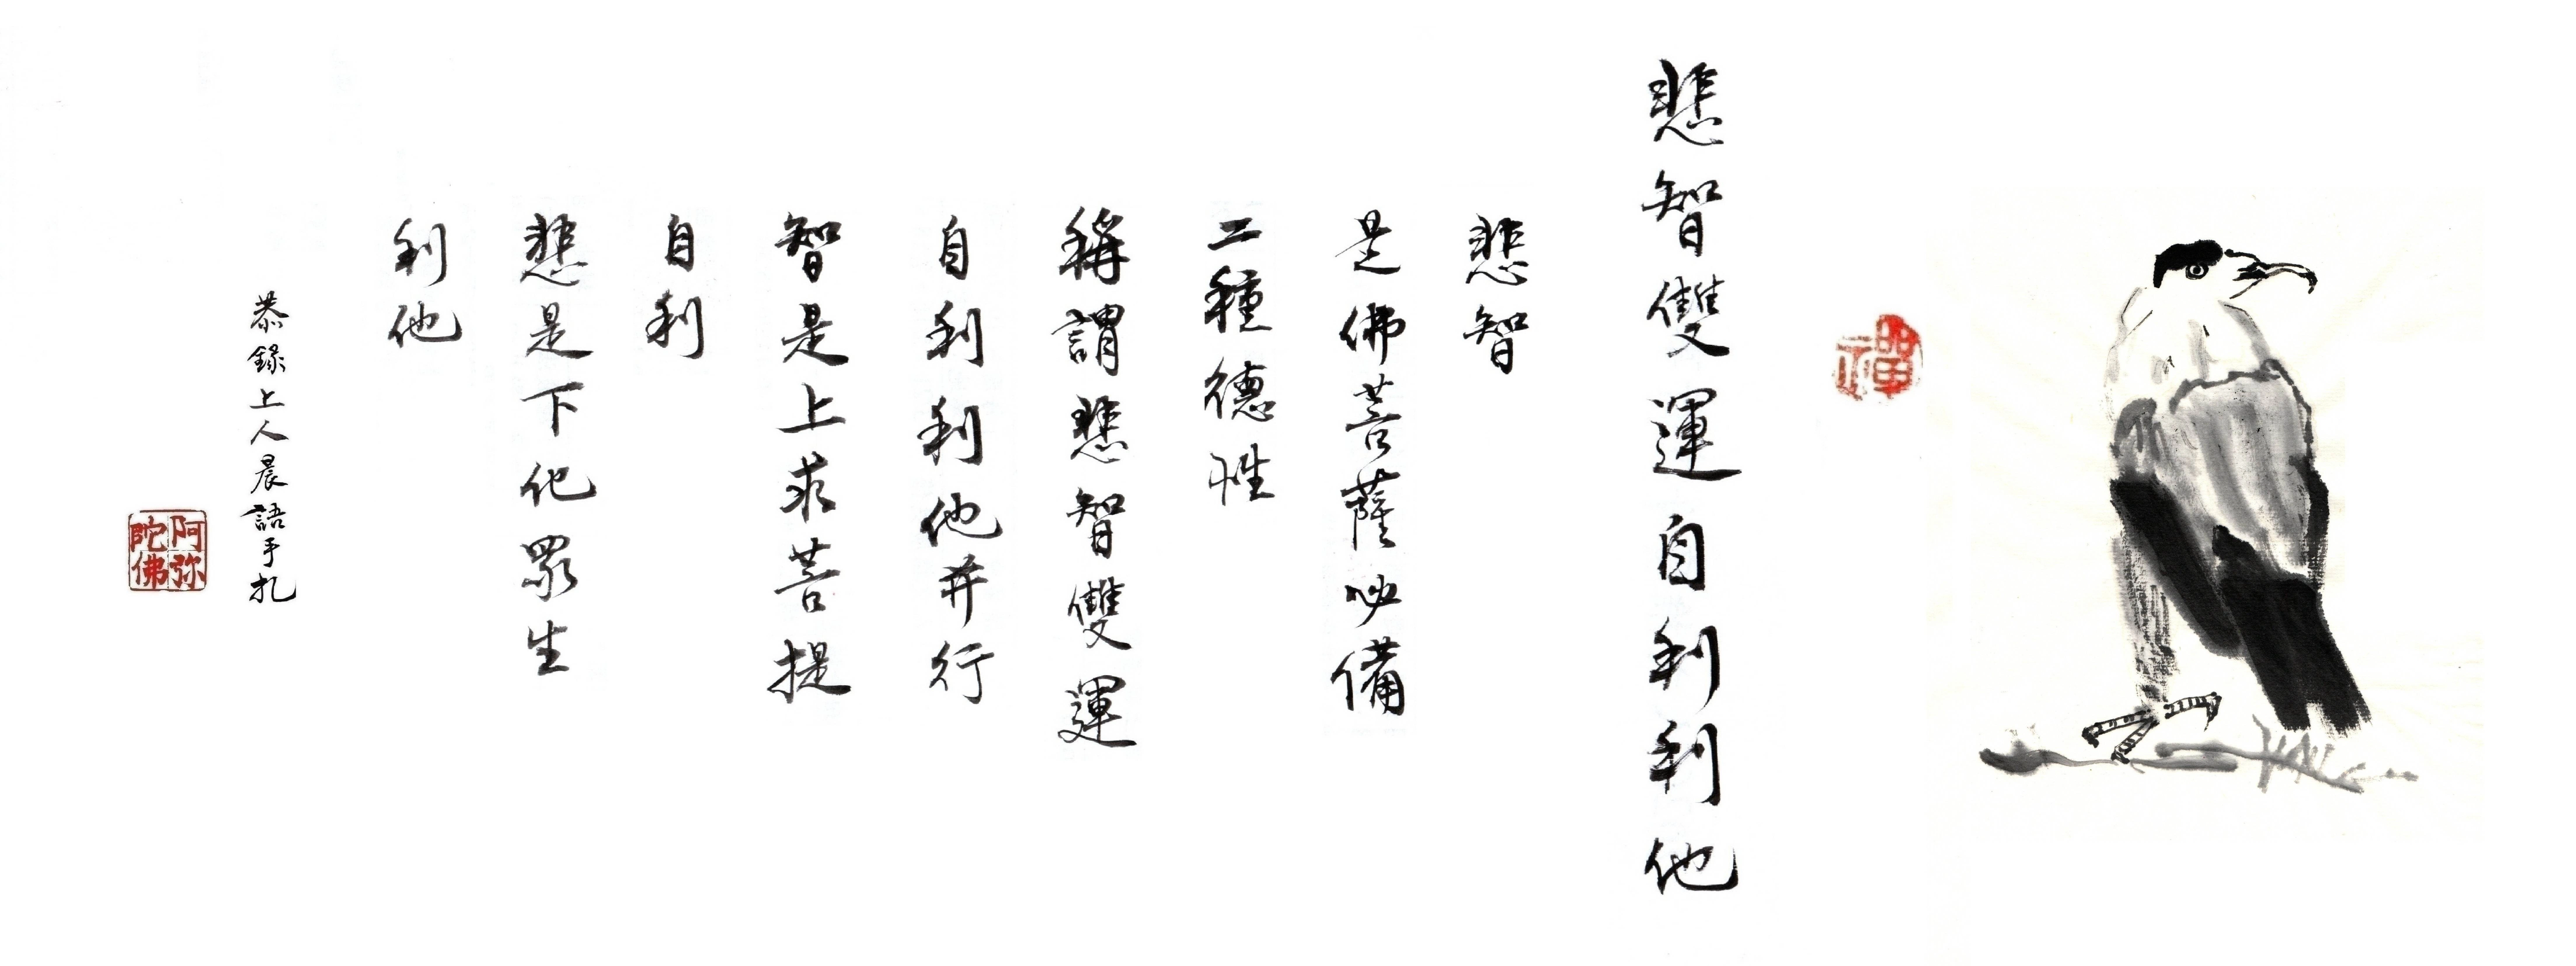 禪
悲智雙運自利利他
悲智
是佛菩薩必備
二種德性
稱謂悲智雙運
自利利他并行
智是上求菩提
自利
悲是下化眾生
利他
恭錄上人晨語手扎
阿弥
陀佛